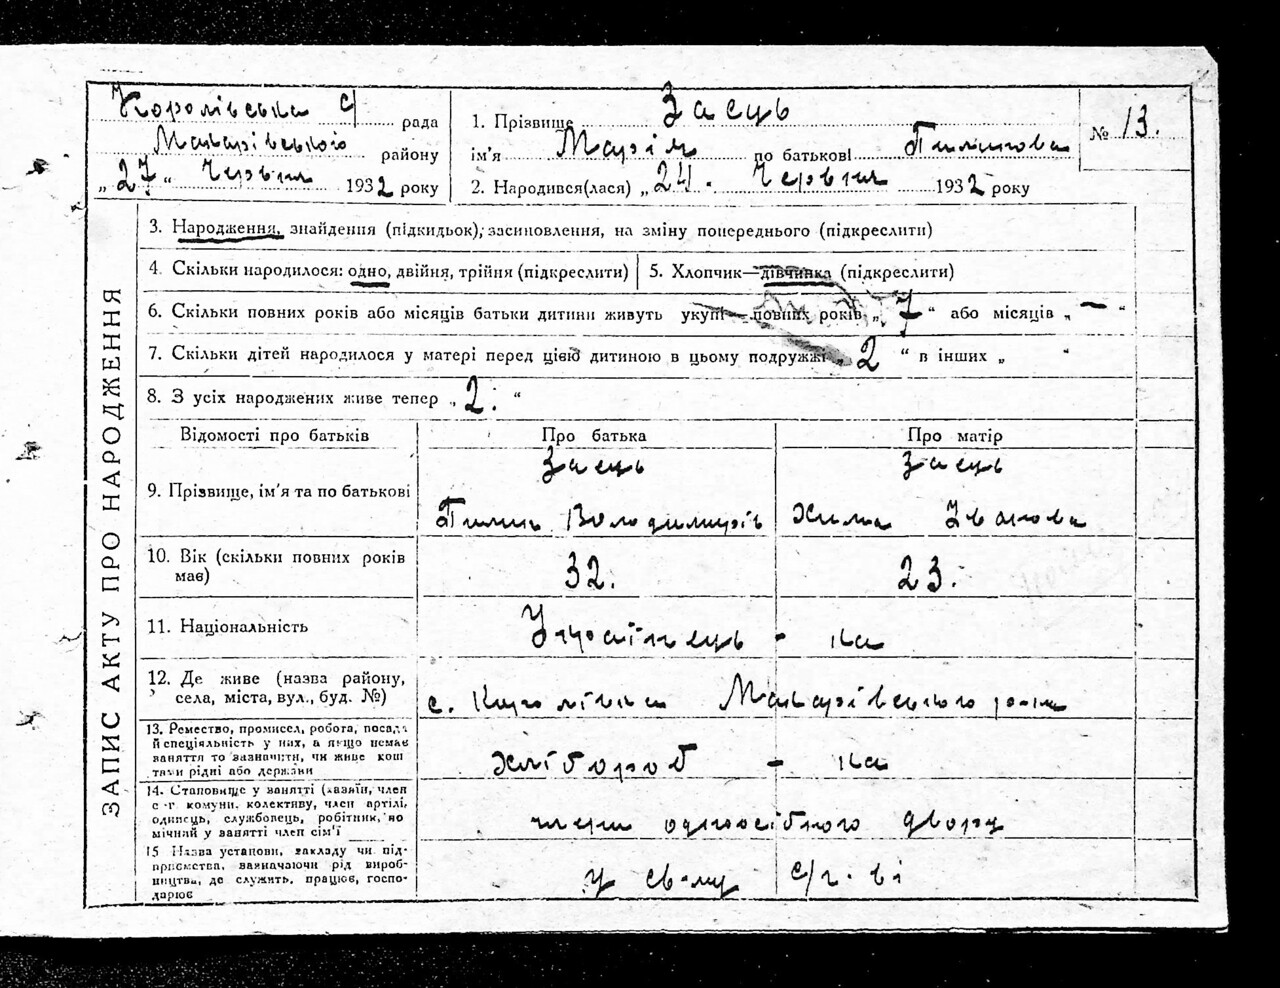 Королівська с/ рада
Макарівського району
„27“ Червня 1932 року
1. Прізвище Заєць
ім'я Марія по батькові Пилипова
2. Народився(лася) „24. Червня 1932 року
№ 13.
ЗАПИС АКТУ ПРО НАРОДЖЕННЯ
3. Народження, знайдення (підкидьок), засиновлення, на зміну попереднього (підкреслити)
4. Скільки народилося: одно, двійня, трійня (підкреслити)
5. Хлопчик—дівчинка (підкреслити)
6. Скільки повних років або місяців батьки дитини живуть укупі—повних років „7“ або місяців „—“
7. Скільки дітей народилося у матері перед цією дитиною в цьому подружжі „2“ в інших „ “
8. З усіх народжених живе тепер „2.“
Відомості про батьків
Про батька
Про матір
9. Прізвище, ім'я та по батькові
Заєць
Пилип Володимирів
Заєць
Хима Іванова
10. Вік (скільки повних років
має)
32.
23.
11. Національність
Українець - ка
12. Де живе (назва району,
села, міста, вул., буд. №)
с. Королівка Макарівського рай
13. Ремество, промисел, робота, посада
й спеціяльність у них, а якщо немає
заняття то зазначити, чи живе кош
тами рідні або держави
хлібороб - ка
14. Становище у занятті (хазяїн, член
с-г комуни, колективу, член артілі,
одинець, службовець, робітник, по
мічний у занятті член сім'ї
члени одноосібного двору
15 Назва установи, закладу чи під-
приємства, зазначаючи рід вироб-
ництва, де служить, працює, госпо-
дарює
у св-му с/г-ві